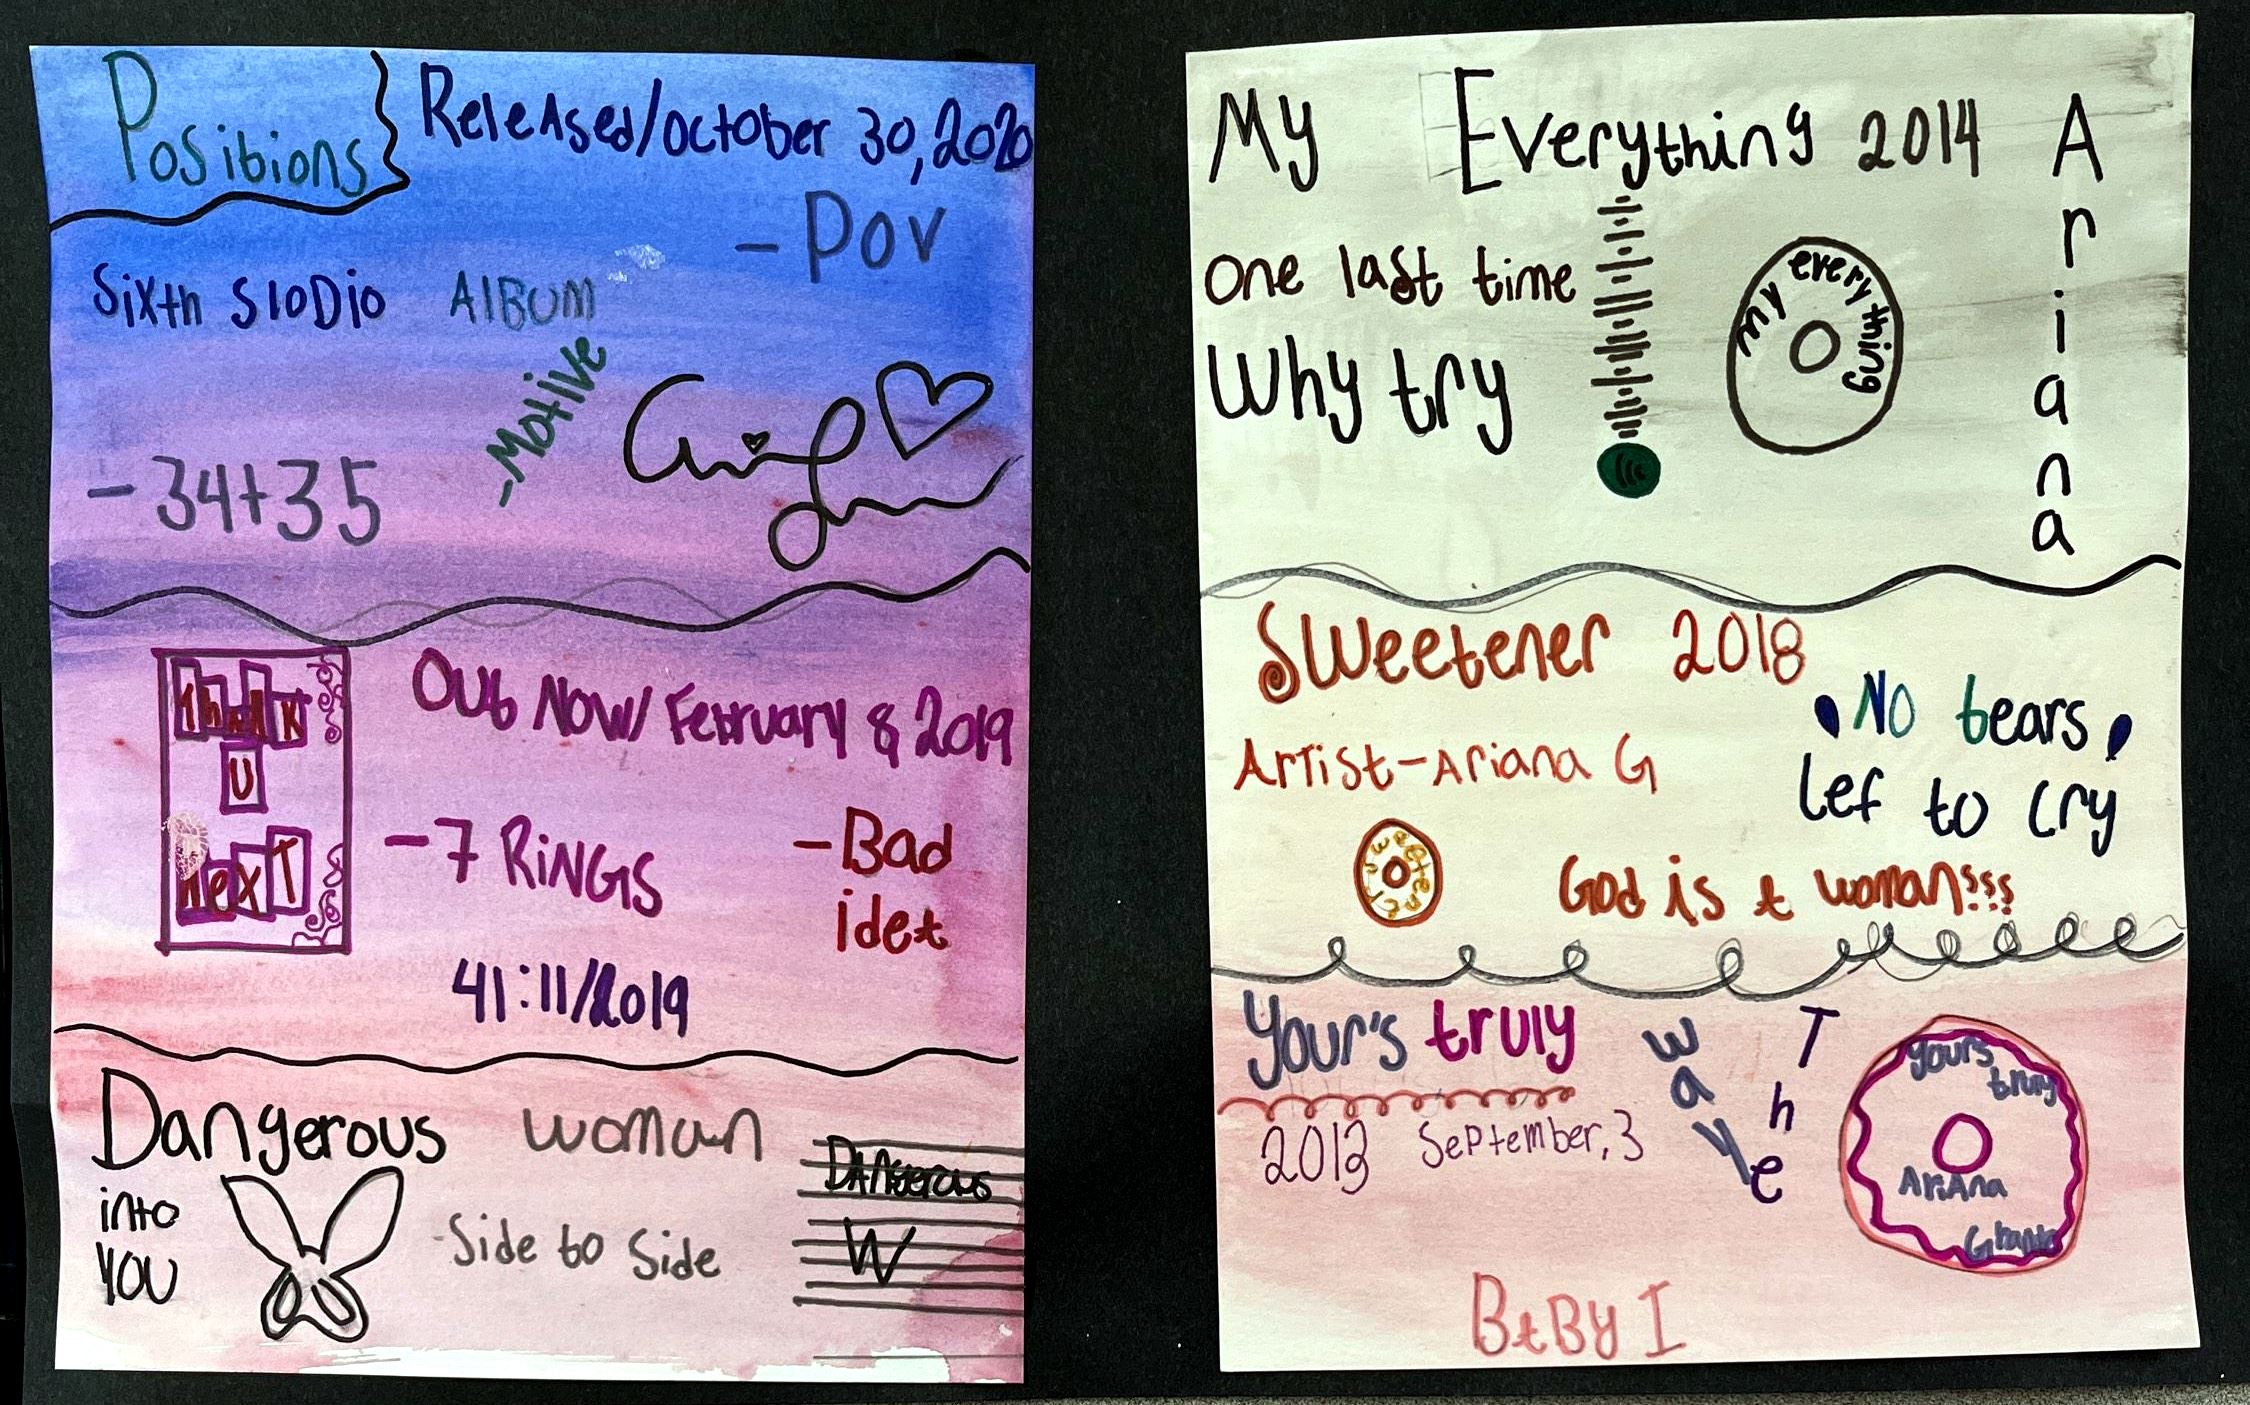 Positions
Released/October 30, 2020
- Pov
Sixth Stodio Album
-Motive
- 34+35
thank
U
next
Out Now/ Fetruary 8 2019
- 7 RiNGS
- Bad
idet
41:11/2019
Dangerous woman
into
YOU
-Side to Side
Dangerous
W
My Everything 2014
Ariana
One last time
Why try
my everything
Sweetener 2018
No tears
lef to cry
Artist-Ariana G
sweetener
God is t woman!!!
Your's truly
The
waye
2013 September, 3
yours
truly
AriAna
Grande
BtBy I